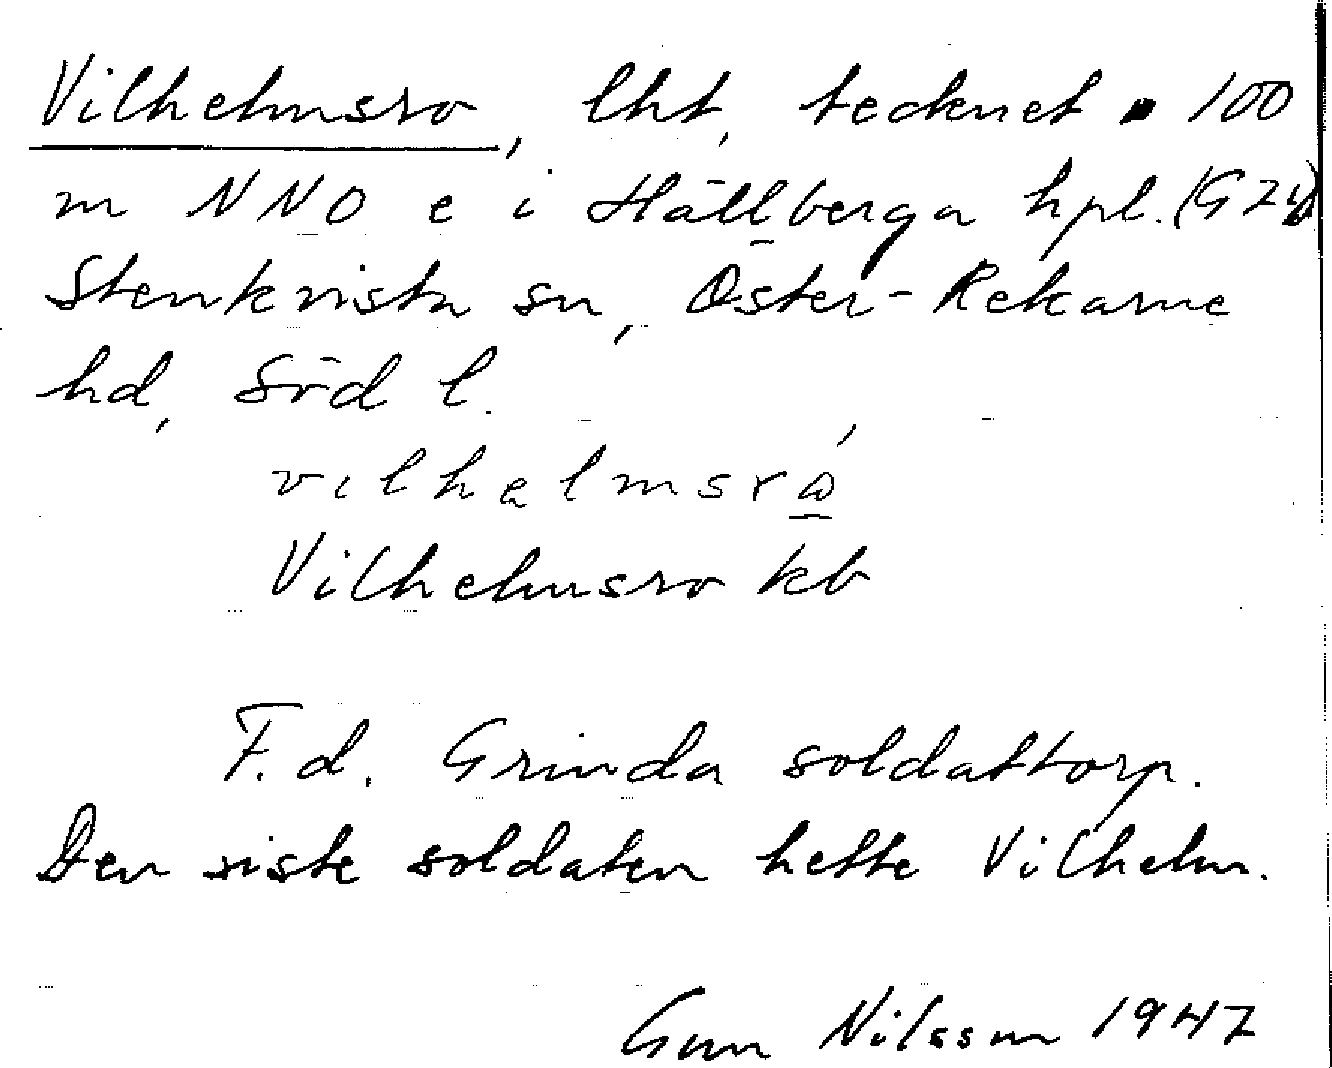 Vilhelmsro, lht, tecknet ▪ 100
m NNO e i Hällberga hpl. (G74)
Stenkvista sn, Öster-Rekarne
hd, Söd l.
vilhelmsrώ̲
Vilhelmsro kb
F.d. Grinda soldattorp.
Den siste soldaten hette Vilhelm.
Gun Nilsson 1947